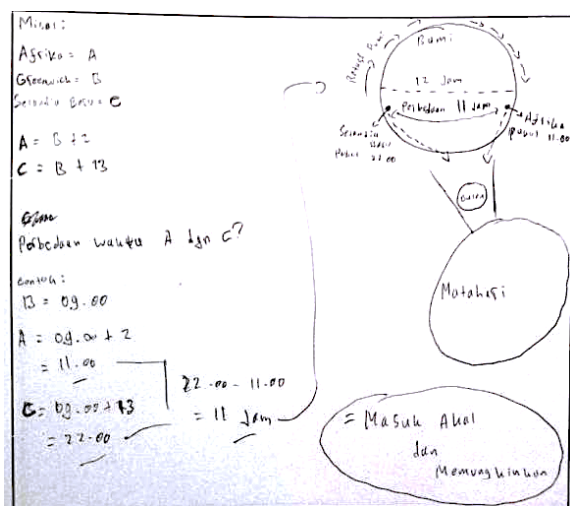 Misal:
Afrika = A
Greenwich = B
Selandia Baru = C
A = B + 2
C = B + 13
Perbedaan waktu A dgn C?
contoh:
B = 09.00
A = 09.00 + 2
= 11.00
C = 09.00 + 13
= 22.00
22.00 - 11.00
= 11 Jam
Rotasi Bumi
Bumi
12 Jam
Perbedaan 11 Jam
Selandia
Baru
Pukul
22.00
Afrika
Pukul 11.00
Bulan
Matahari
= Masuk Akal
dan
Memungkinkan